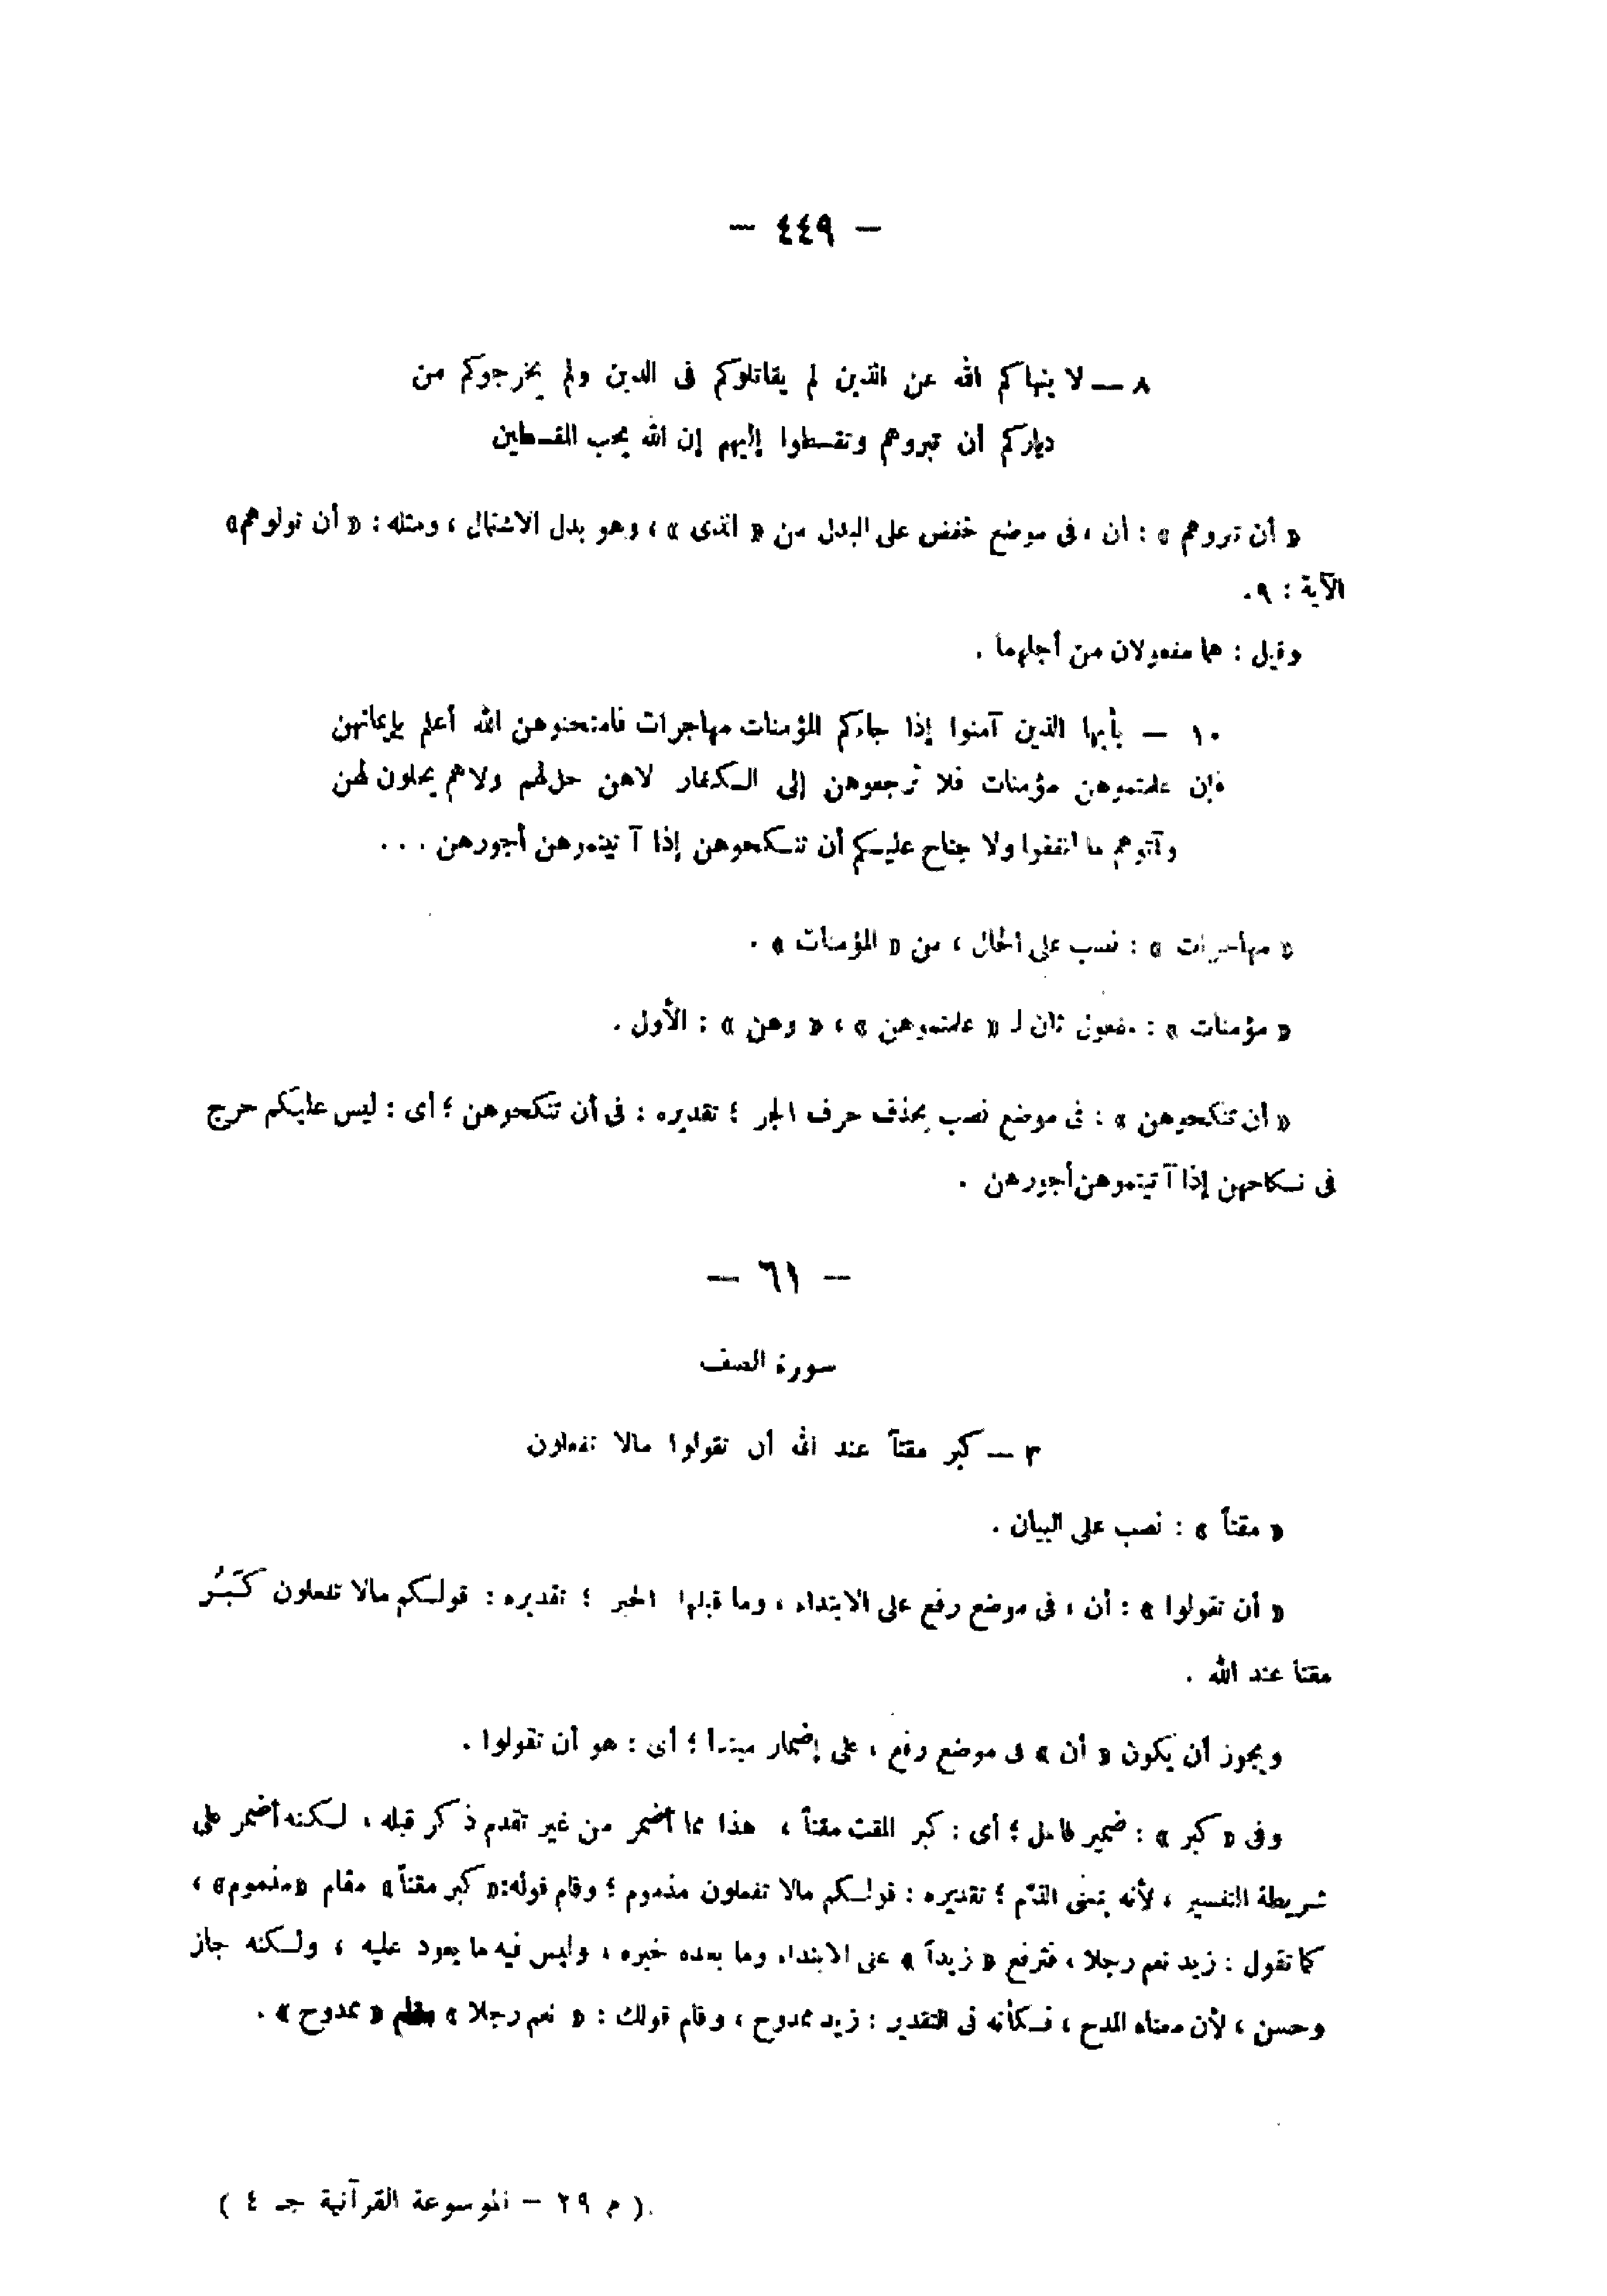 — ٤٤٩ —
٨ — لا ينهاكم الله عن الذين لم يقاتلوكم فى الدين ولم يخرجوكم من
دياركم أن تبروهم وتقسطوا إليهم إن الله يحب المقسطين
« أن تبروهم » : أن ، فى موضع خفض على البدل من « الذى » ، وهو بدل الاشتمال ، ومثله : « أن تولوهم»
الآية : ٩ .
وقيل : هما مفعولان من أجلهما .
١٠ — يأيها الذين آمنوا إذا جاءكم المؤمنات مهاجرات فامتحنوهن الله أعلم بإيمانهن
فإن علمتموهن مؤمنات فلا ترجعوهن إلى الكفار لاهن حل لهم ولاهم يحلون لهن
وآتوهم ما أنفقوا ولا جناح عليكم أن تنكحوهن إذا آتيتموهن أجورهن . . .
« مهاجرات » : نصب على الحال ، من « المؤمنات » .
« مؤمنات » : مفعول ثان لـ « علمتموهن » ، « وهن » : الأول .
« أن تنكحوهن » : فى موضع نصب بحذف حرف الجر ؛ تقديره : فى أن تنكحوهن ؛ أى : ليس عليكم حرج
فى نكاحهن إذا آتيتموهن أجورهن .
— ٦١ —
سورة الصف
٣ — كبر مقتاً عند الله أن تقولوا مالا تفعلون
« مقتاً » : نصب على البيان .
« أن تقولوا » : أن ، فى موضع رفع على الابتداء ، وما قبلها الخبر ؛ تقديره : قولكم مالا تفعلون كَبُر
مقتا عند الله .
ويجوز أن يكون « أن » فى موضع رفع ، على إضمار مبتدأ ؛ أى : هو أن تقولوا .
وفى « كبر » : ضمير فاعل ؛ أى : كبر المقت مقتاً ، هذا مما أضمر من غير تقدم ذكر قبله ، لكنه أضمر على
شريطة التفسير ، لأنه بمعنى الذم ؛ تقديره : قولكم مالا تفعلون مذموم ؛ وقام قوله:« كبر مقتاً» مقام «مذموم» ،
كما تقول : زيد نعم رجلا ، فترفع « زيداً » على الابتداء وما بعده خبره ، وليس فيه ما يعود عليه ، ولكنه جاز
وحسن ، لأن معناه المدح ، فكأنه فى التقدير : زيد ممدوح ، وقام قولك : « نعم رجلا » مقام « ممدوح » .
( م ٢٩ — الموسوعة القرآنية جـ ٤ )